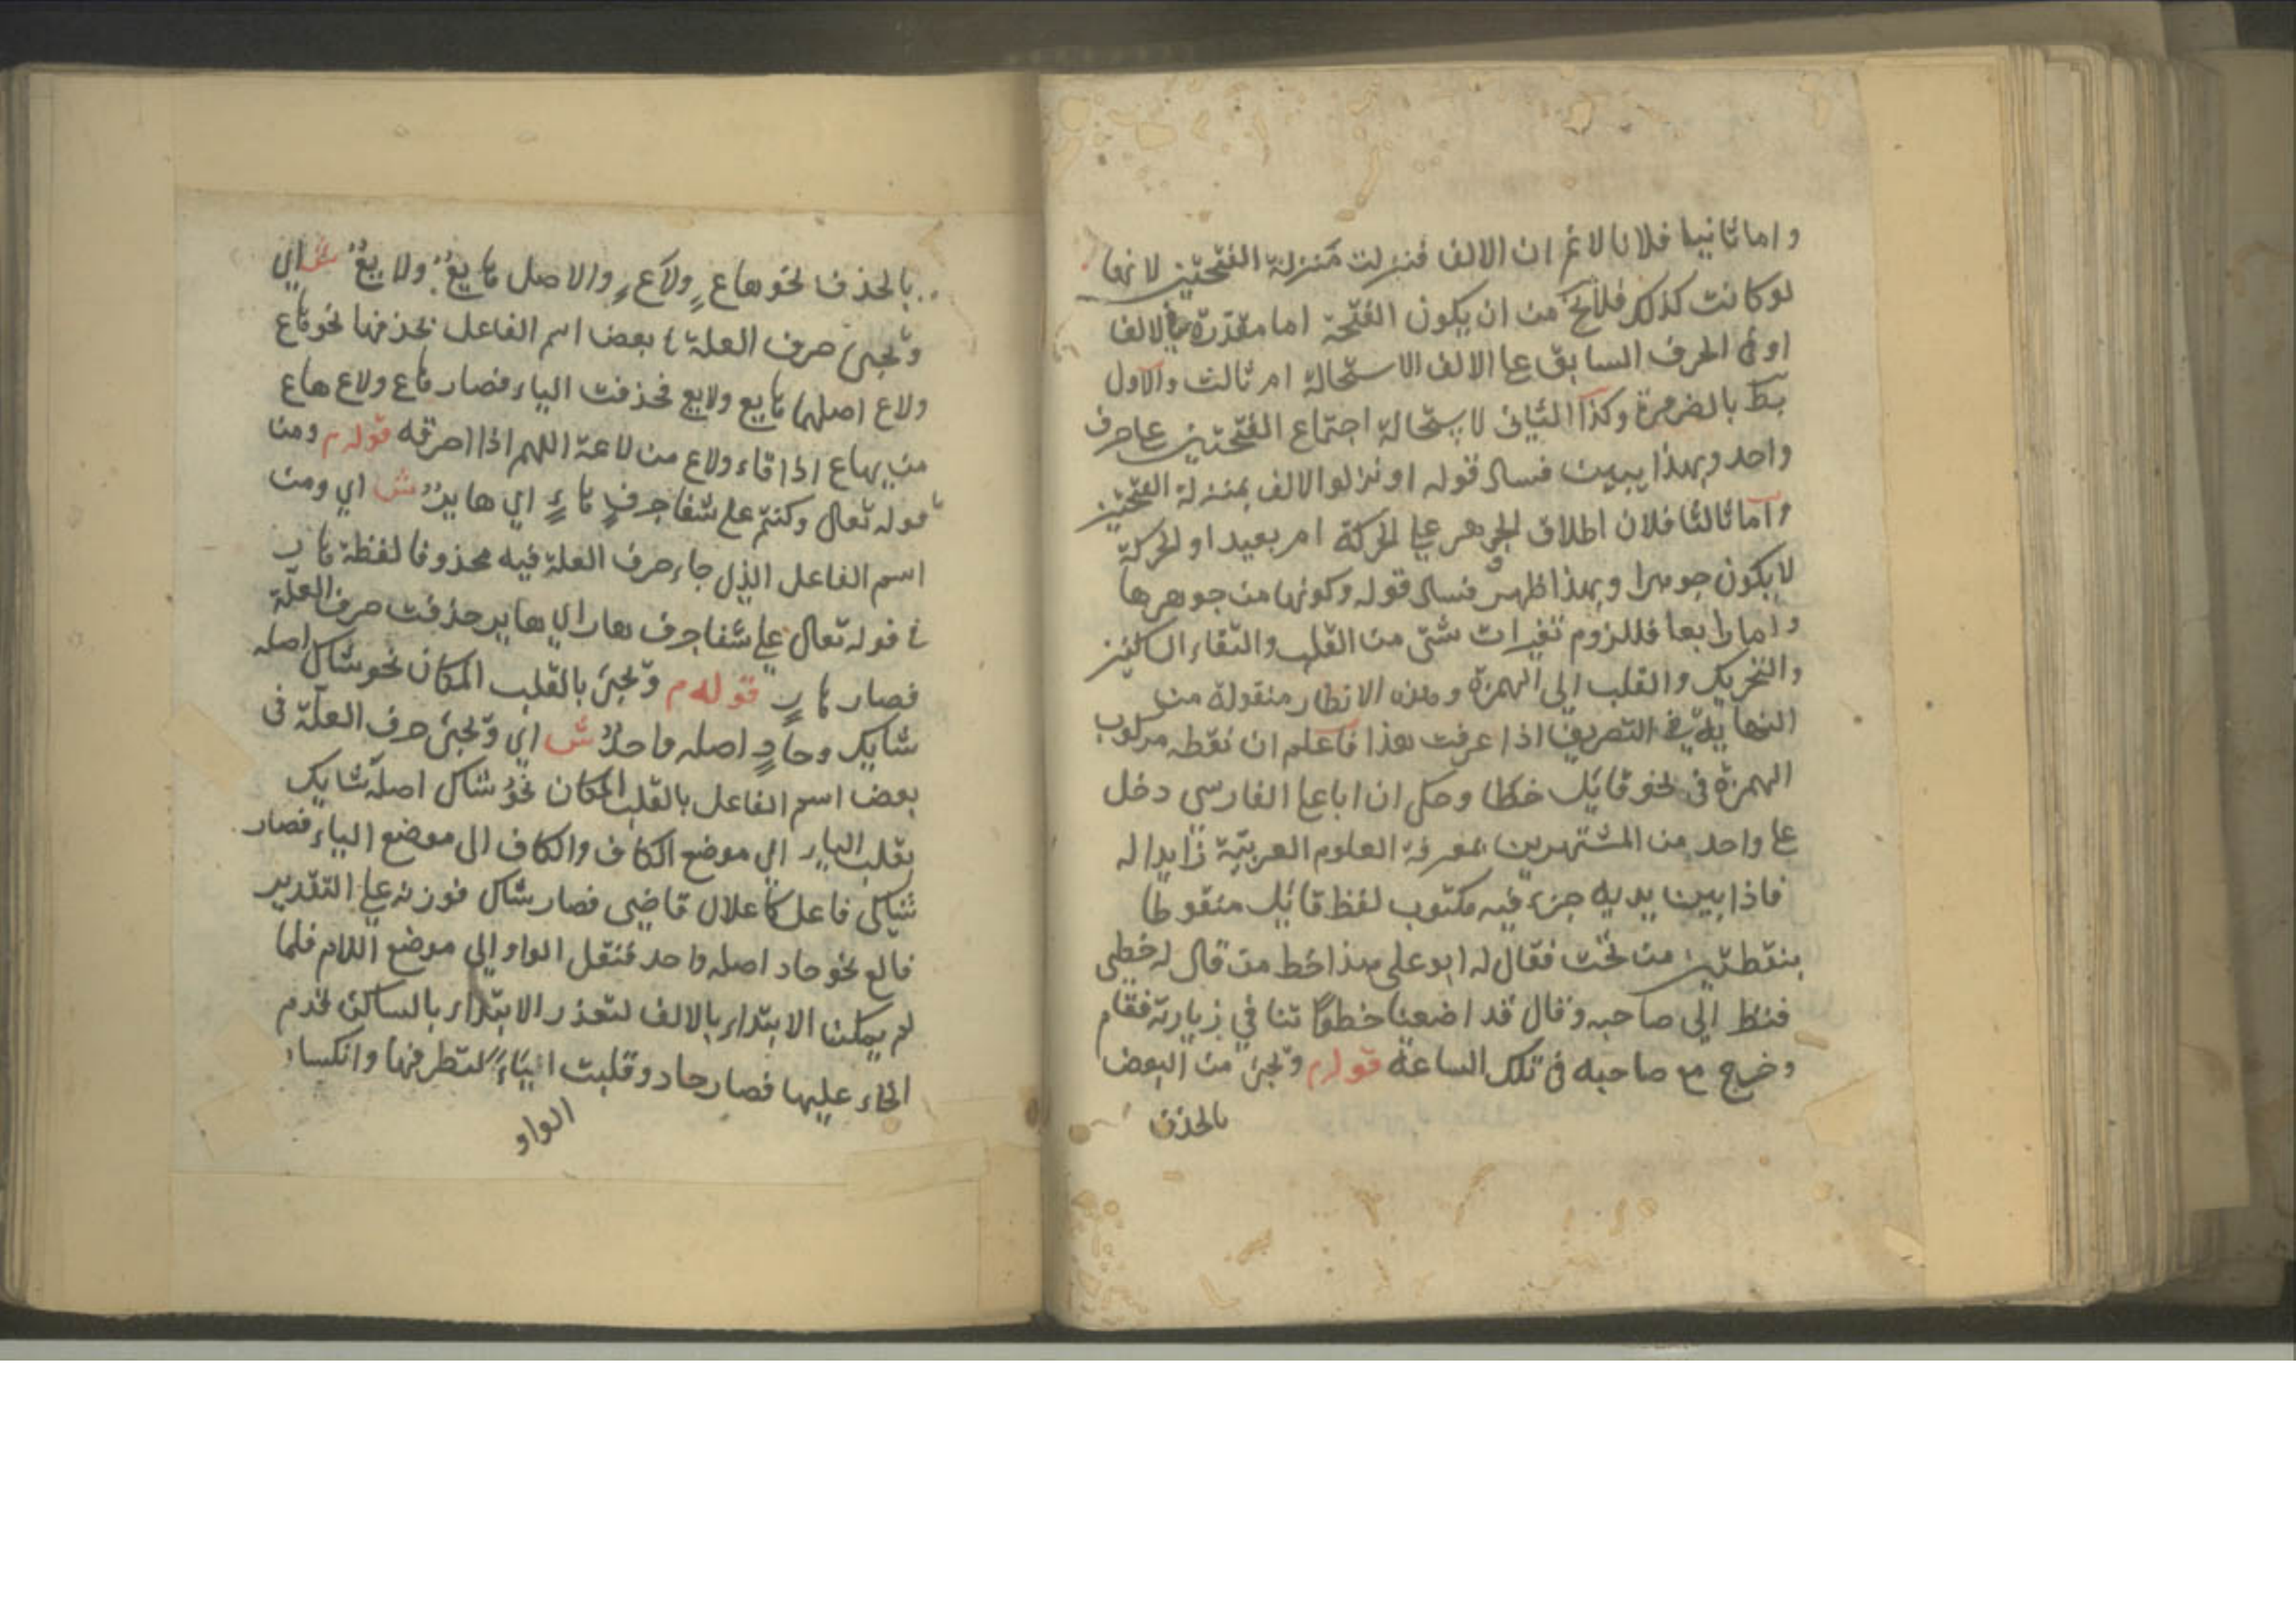 واما ثانيا فلانا لا نم ان الالف فنزلت منزلة الفتحتين لانها
لو كانت كذلك فلا يخ من ان يكون الفتحة اما مقدرة في الالف
او في الحرف السابق عل الالف الاستحالة امر ثالث والاول
بط بالضرورة وكذا الثاني لاستحالة اجتماع الفتحتين عل حرف
واحد وبهذا يبين فساد قوله او نزلو الالف بمنزلة الفتحتين
واما ثالثا فلان اطلاق الجوهر علي الحركة امر بعيد اولحركة
لا يكون جوهرا وبهذا ظهر فساد قوله وكونها من جوهرها
واما رابعا فللزوم تغيرات شتى من القلب والتقاء الساكنين
والتحريك والقلب الى الهمزة وهذه الانظار منقولة من
النهاية في التصريف اذا عرفت هذا فاعلم ان نقطه مركوب
الهمزة في نحو قايك خطا وحكى ان ابا عل الفارسي دخل
عل واحد من المشتهرين بمعرفة العلوم العربية زايدا له
فاذا بين يديه جزء فيه مكتوب لفظ قائل منقوطا
بنقطتين من تحت فقال له ابو على هذا خط من قال له خطي
فنظر الي صاحبه وقال قد اضعنا خطوا تنا في زيارته فقام
وخرج مع صاحبه في تلك الساعة قوله م وتجئ من البعض
بالحذف
بالحذف نحو هاع ولاع والاصل هايع ولايع ش اي
وتجئ حرف العلة في بعض اسم الفاعل بحذفها نحو هاع
ولاع اصلهما هايع ولايع فحذفت الياء فصار هاع ولاع هاع
من يهاع اذا قاء ولاع من لاعة اللهم اذا احرقه قوله م ومن
قوله تعالى وكنتم على شفا جرف هار اي هاير ش اي ومن
اسم الفاعل الذي جاء حرف العلة فيه محذوفا لفظة هار
في قوله تعالى علي شفا جرف هار اي هاير حذفت حرف العلة
فصار هار قوله م وتجئ بالقلب المكان نحو شاك اصله
شايك وحاد اصله واحد ش اي وتجئ حرف العلة في
بعض اسم الفاعل بالقلب المكان نحو شاك اصله شايك
بقلب الياء الي موضع الكاف والكاف الى موضع الياء فصار
شاكى فاعل كاعلال قاضي فصار شاك فوزنه علي التقدير
فالع نحو حاد اصله واحد فنقل الواو الي موضع اللام فلما
لم يمكن الابتداء بالالف لتعذر الابتداء بالساكن قدم
الحاء عليها فصار حادو قلبت الياء لتطرفها وانكسار
الواو